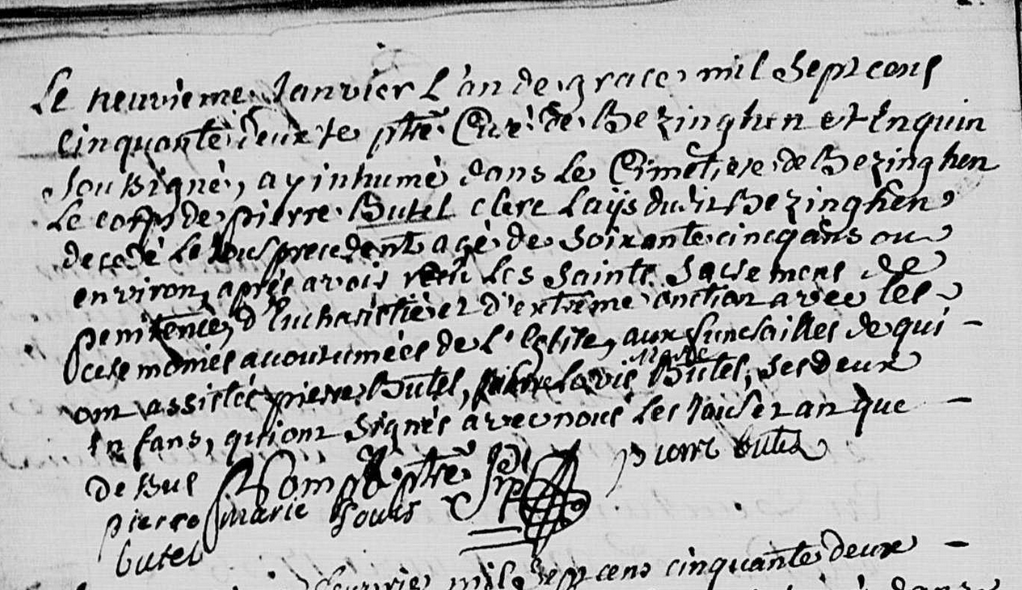 Le neuvieme Janvier L'an de grace mil Sept cens
cinquante deux Je ptre Curé de Bezinghen et Enquin
Soussigné, ay inhumé dans Le Cimetiere de Bezinghen
Le corps de pierre Butel clerc Laÿs dudit Bezinghen
decedé Le Jour precedent agé de Soixante cinq ans ou
environ, aprés avoir Les Sainte Sacremens de
penitence, d'Eucharistie et d'extreme onction avec les
ceremonies accoutumées de L'Eglise, aux funerailles de qui
ont assistés pierre Butel, Louis marie Butel, ses deux
Enfans, qui ont Signés avec nous Les Jour et an que
De Sus ptre pierre butel
pierre marie Louis
butel
mil Sept cens cinquante deux